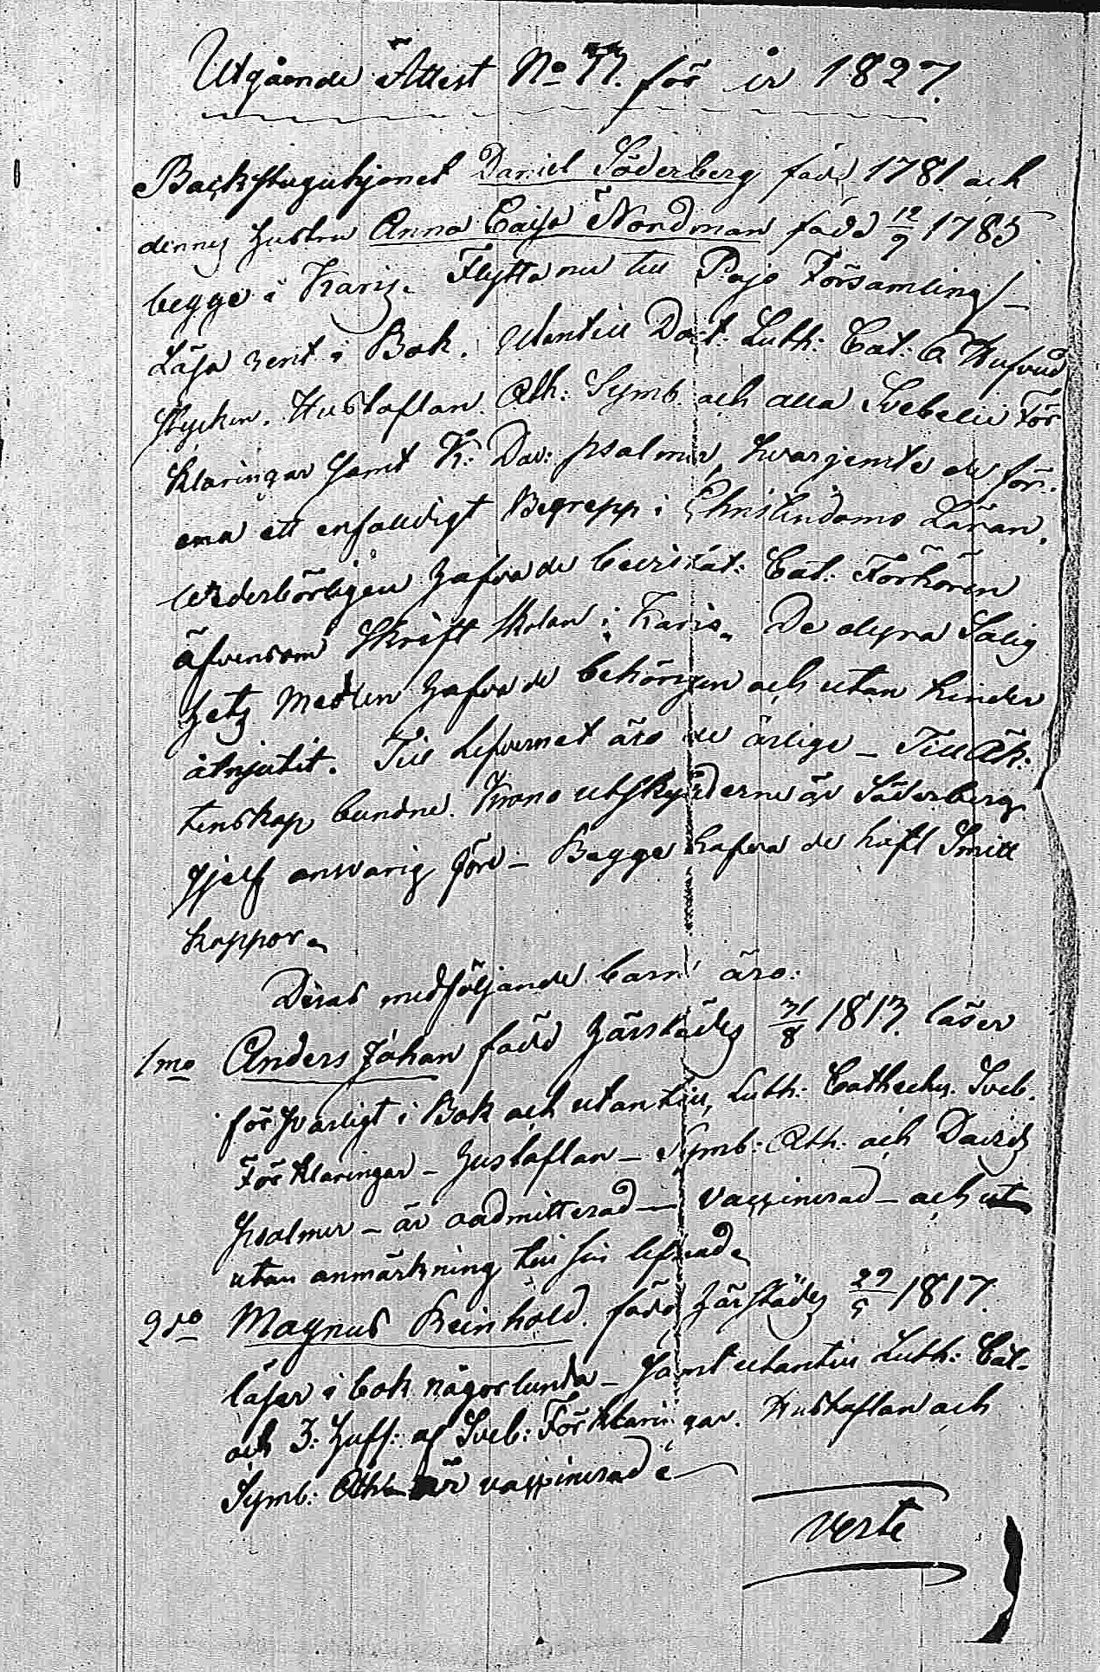 Utgående Attest No 77. för år 1827.
Backstuguhjonet Daniel Söderberg född 1781 och
dennes hustru Anna Caisa Nordman född 12/9 1785
begge i Karis. Flytta nu till Pojo Församling
Läsa rent i Bok. Utantill Doct: Luth: Cat: a Hufvud
stycken. Hustaflan. Ath: Symb. och alla Svebelii För
klaringar samt K: Dav: psalmer, hvarjemte de för-
ena ett enfalldigt Begrepp i Christendoms Läran.
Wederbörligen hafva de bevistat: Cat: Förhören
äfvensom Skrift skolan i Karis. De dyra Salig
hetz Medlen hafva de behörigen och utan hinder
åtnjutit. Till Lefvernet äro de ärlige – Till Äk:
tenskap bundne. Krono utskylderne är Söderberg
sjelf ansvarig före – Begge hafva de haft Smitt
koppor.
Deras medföljande barn äro:
1mo Anders Johan född härstädes 31/8 1813. läser
försvarligt i Bok och utantill, Luth: Catheches. Sveb.
Förklaringar – hustaflan – Symb: Ath: och Davids
psalmer – är oadmitterad – vaccinerad – och ut
utan anmärkning till sin lefnad.
2do Magnus Reinhold. född härstädes 29/5 1817.
läser i bok någorlunda – samt utantill Luth: Cat-
och 3: huff: af Sveb: Förklaringar. Hustaflan och
Symb: Ath är vaccinerad
Verte